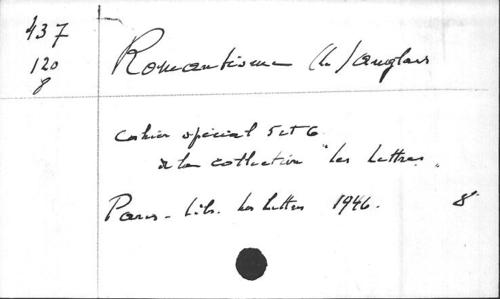 437
120
8
Romantisme (Le) anglais
Cahier spécial 5 et 6
de la collection "Les Lettres"
Paris - Lib. Les Lettres 1946. 8°